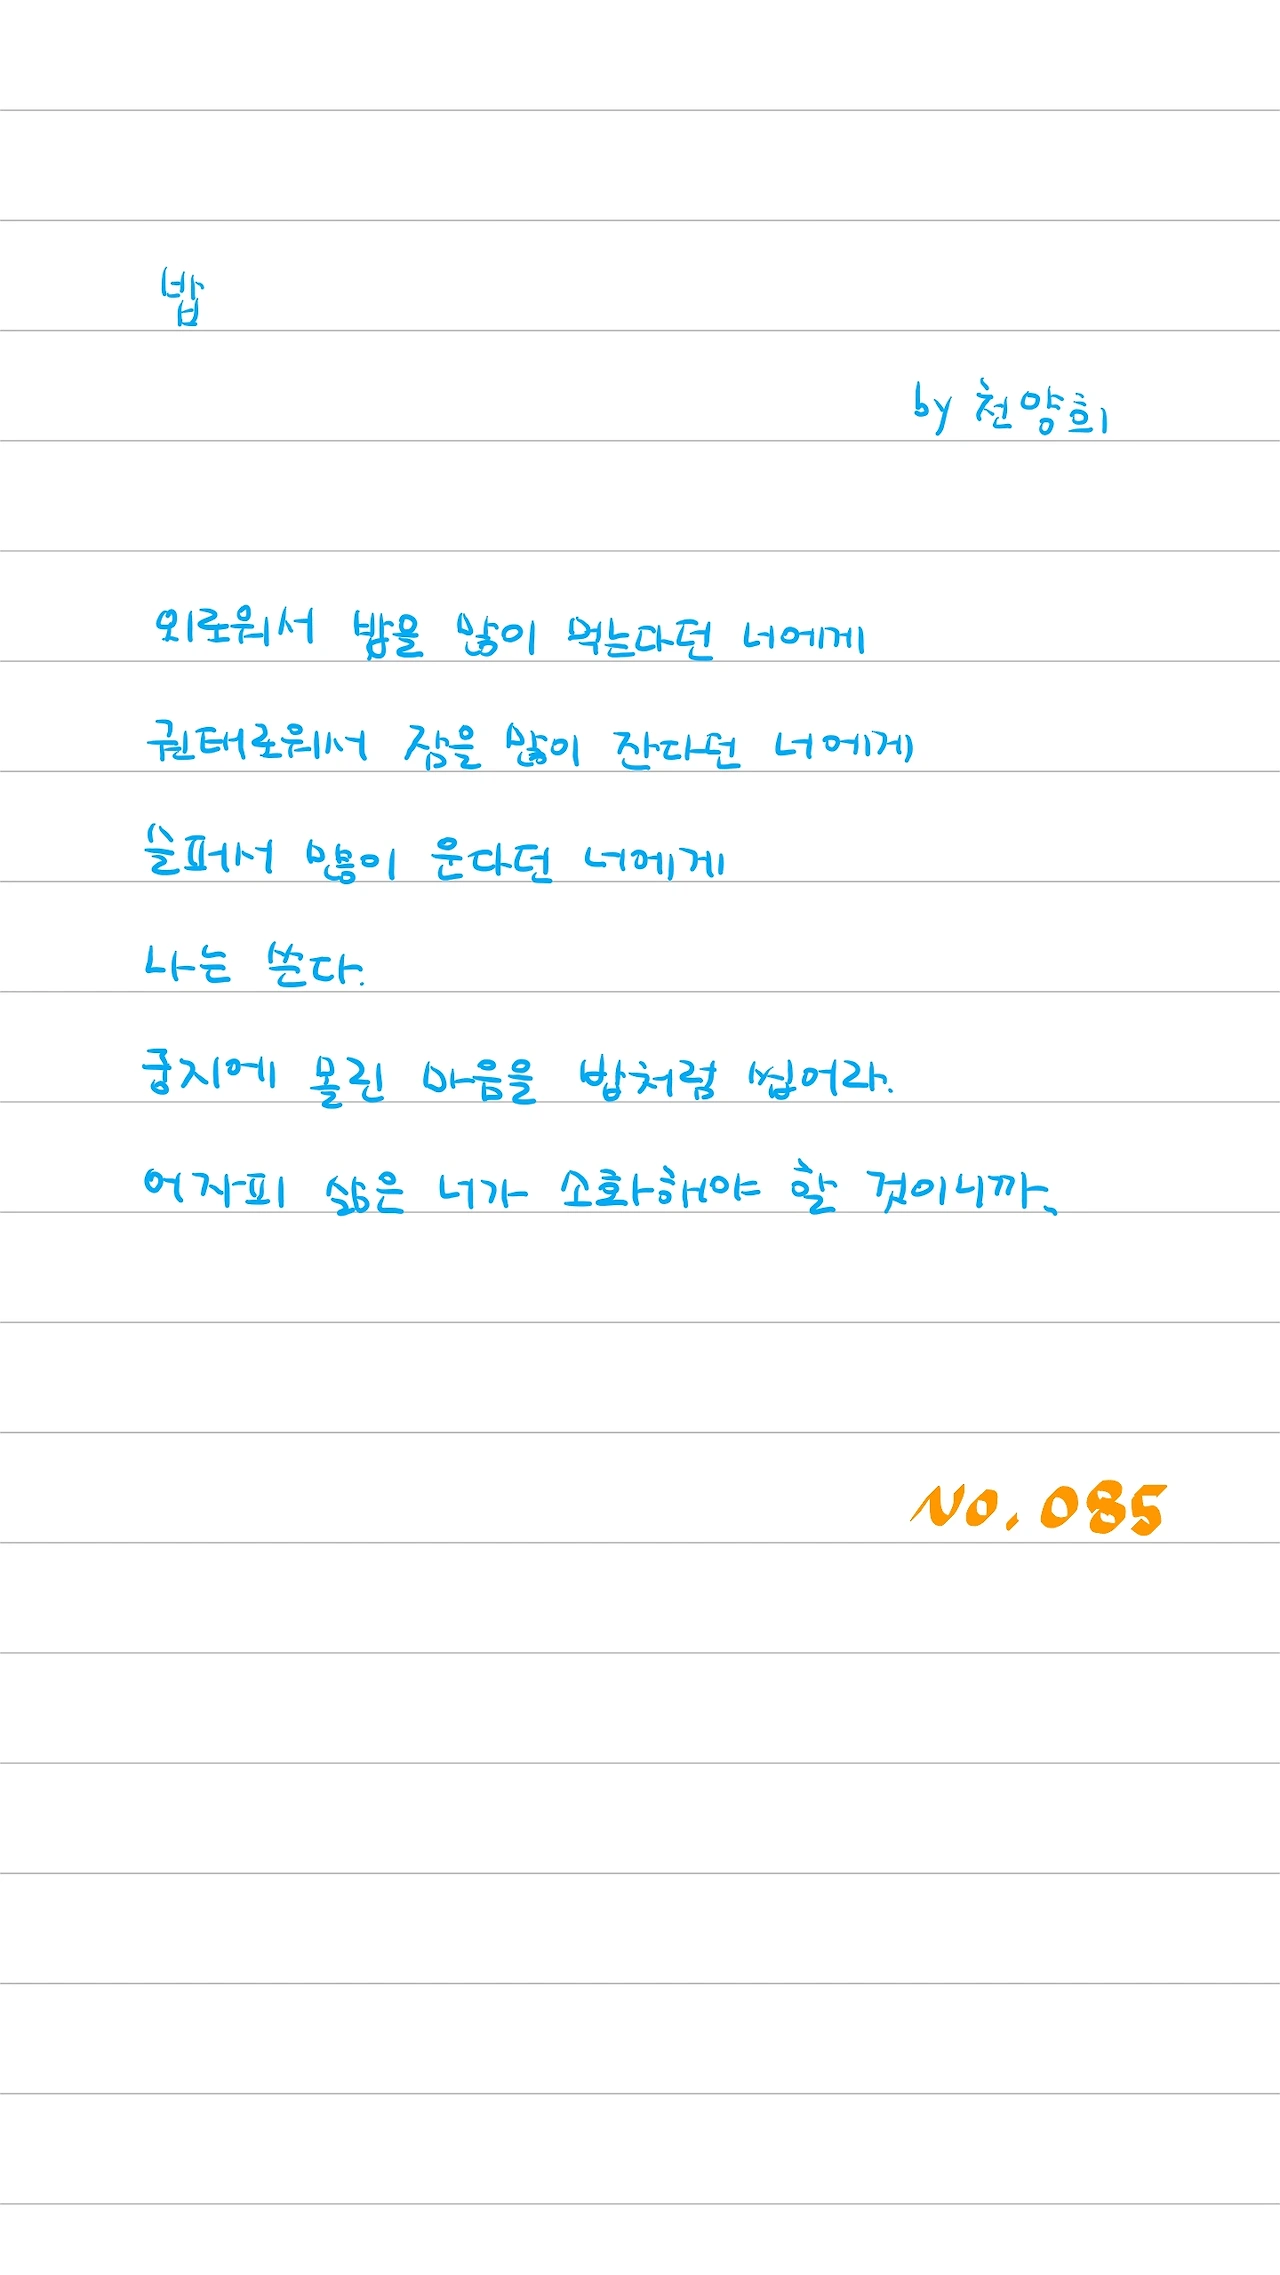 밥
by 천양희
외로워서 밥을 많이 먹는다던 너에게
권태로워서 잠을 많이 잔다던 너에게
슬퍼서 많이 운다던 너에게
나는 쓴다.
궁지에 몰린 마음을 밥처럼 씹어라.
어차피 삶은 너가 소화해야 할 것이니까.
No. 085